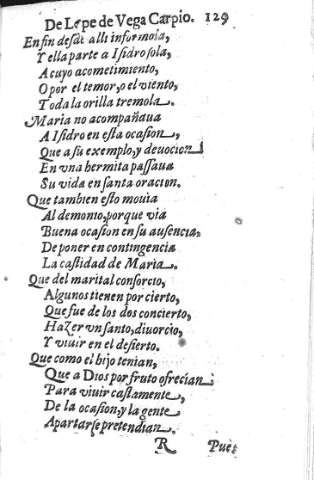 De Lope de Vega Carpio. 129
En fin desde alli informola,
Y ella parte a Isidro sola,
A cuyo acometimiento,
O por el temor, o el viento,
Toda la orilla tremola.
Maria no acompañaua
A Isidro en esta ocasion,
Que a su exemplo, y deuocion
En vna hermita passaua
Su vida en santa oracion.
Que tambien esto mouia
Al demonio, porque via
Buena ocasion en su ausencia,
De poner en contingencia
La castidad de Maria.
Que del marital consorcio,
Algunos tienen por cierto,
Que fue de los dos concierto,
Hazer vn santo, diuorcio,
Y viuir en el desierto.
Que como el hijo tenian,
Que a Dios por fruto ofrecian
Para viuir castamente,
De la ocasion, y la gente
Apartarse pretendian.
R Pues